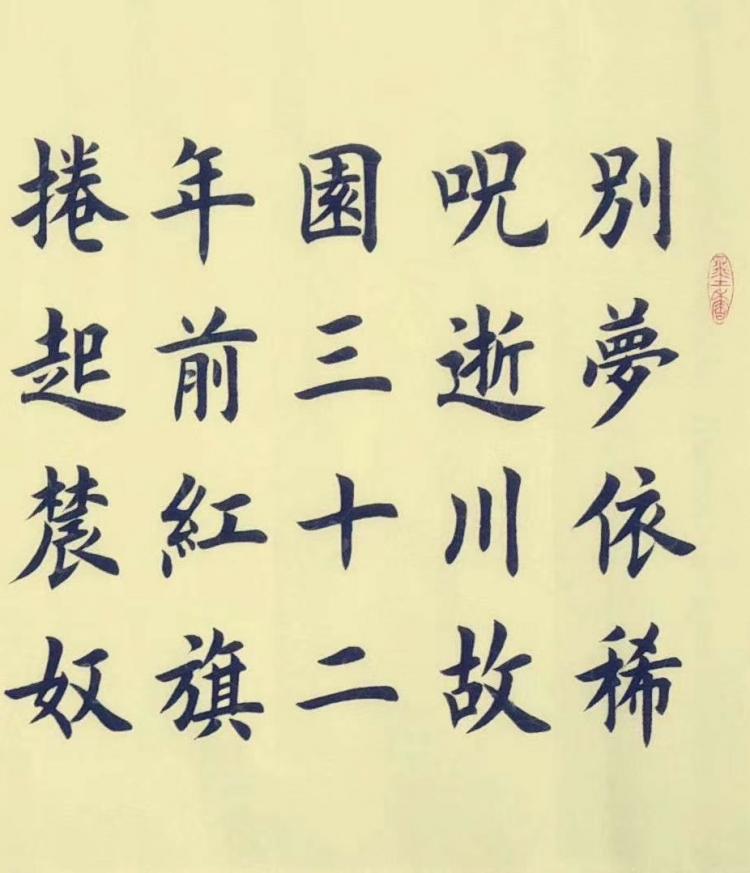 別夢依稀
呪逝川故
園三十二
年前紅旗
捲起農奴
墨香